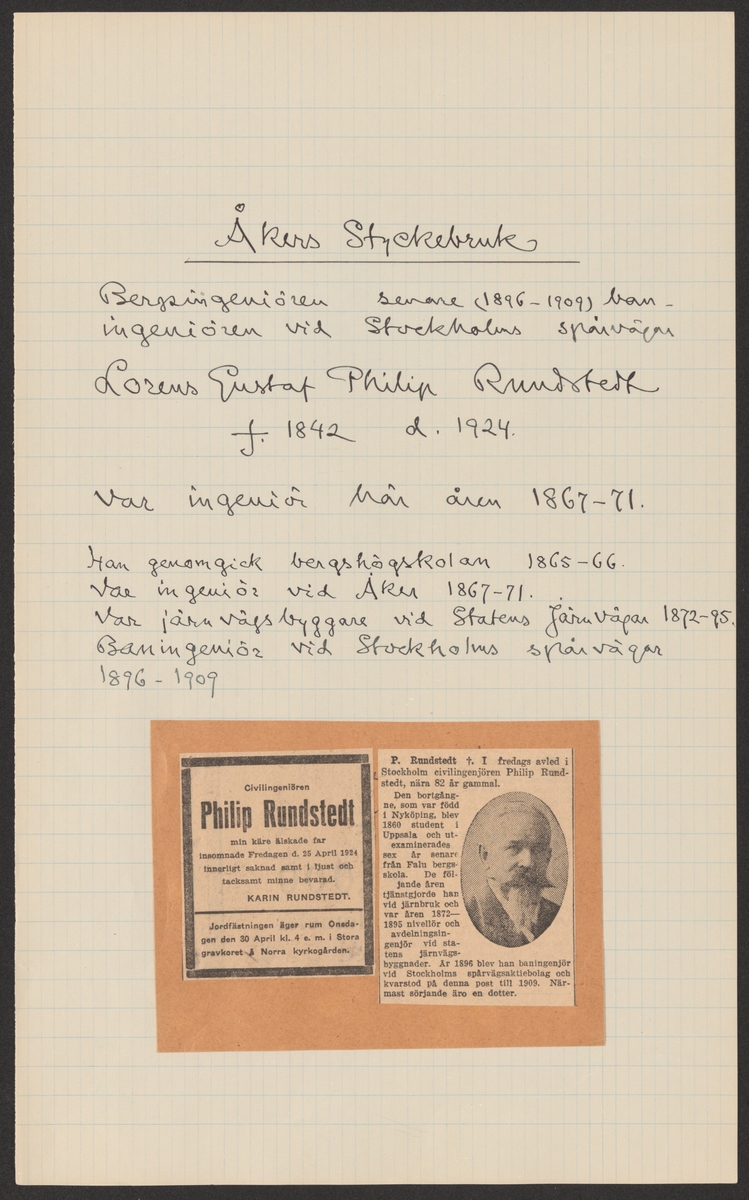 Åkers Styckebruk
Bergsingeniören senare (1896-1909) ban-
ingeniören vid Stockholms spårvägar
Lorens Gustaf Philip Rundstedt
f. 1842 d. 1924.
Var ingeniör här åren 1867-71.
Han genomgick bergshögskolan 1865-66.
Var ingeniör vid Åker 1867-71.
Var järnvägsbyggare vid Statens Järnvägar 1872-95.
Baningeniör vid Stockholms spårvägar
1896-1909
Civilingeniören
Philip Rundstedt
min käre älskade far
insomnade Fredagen d. 25 April 1924
innerligt saknad samt i ljust och
tacksamt minne bevarad.
KARIN RUNDSTEDT.
Jordfästningen äger rum Onsda-
gen den 30 April kl. 4 e. m. i Stora
gravkoret å Norra kyrkogården.
P. Rundstedt †. I fredags avled i
Stockholm civilingenjören Philip Rund-
stedt, nära 82 år gammal.
Den bortgång-
ne, som var född
i Nyköping, blev
1860 student i
Uppsala och ut-
examinerades
sex år senare
från Falu bergs-
skola. De föl-
jande åren
tjänstgjorde han
vid järnbruk och
var åren 1872—
1895 nivellör och
avdelningsin-
genjör vid sta-
tens järnvägs-
byggnader. År 1896 blev han baningenjör
vid Stockholms spårvägsaktiebolag och
kvarstod på denna post till 1909. När-
mast sörjande äro en dotter.